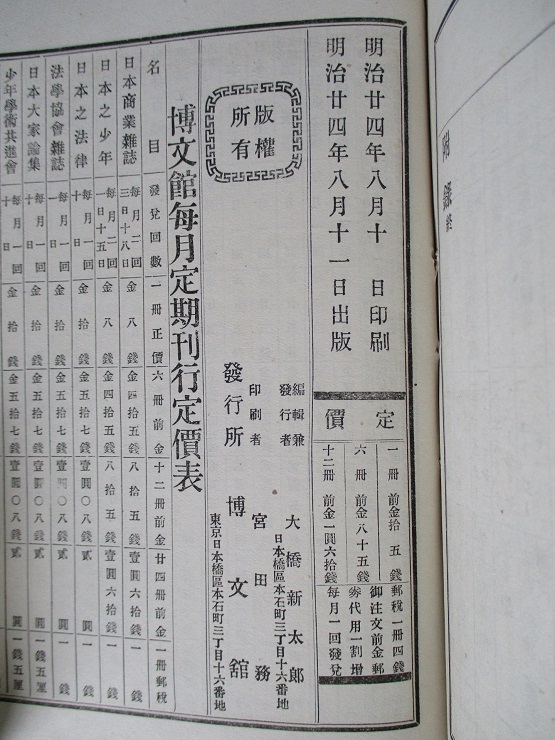 附錄終
明治廿四年八月十日印刷
明治廿四年八月十一日出版
定價
一冊 前金拾五錢 郵稅一冊四錢
六冊 前金八十五錢 御注文前金郵
十二冊 前金一圓六拾錢 券代用一割增
每月一回發兌
版權所有
編輯兼發行者 大橋新太郎
日本橋區本石町三丁目十六番地
印刷者 宮田務
發行所 博文舘
東京日本橋區本石町三丁目十六番地
博文館每月定期刊行定價表
名目 發兌回數 一冊正價 六冊前金 十二冊前金 廿四冊前金 一冊郵稅
日本商業雜誌 每月二回 三日十八日 金八錢 金四拾五錢 八拾五錢 壹圓六拾錢 一錢
日本之少年 每月二回 一日十五日 金八錢 金四拾五錢 八拾五錢 壹圓六拾錢 一錢
日本之法律 每月一回 十日 金拾錢 金五拾七錢 壹圓〇八錢 貳圓 一錢
法學協會雜誌 每月一回 一日 金拾錢 金五拾七錢 壹圓〇八錢 貳圓 一錢
日本大家論集 每月一回 十日 金拾錢 金五拾七錢 壹圓〇八錢 貳圓 一錢五厘
少年學術共進會 每月一回 十日 金拾錢 金五拾七錢 壹圓〇八錢 貳圓 一錢五厘